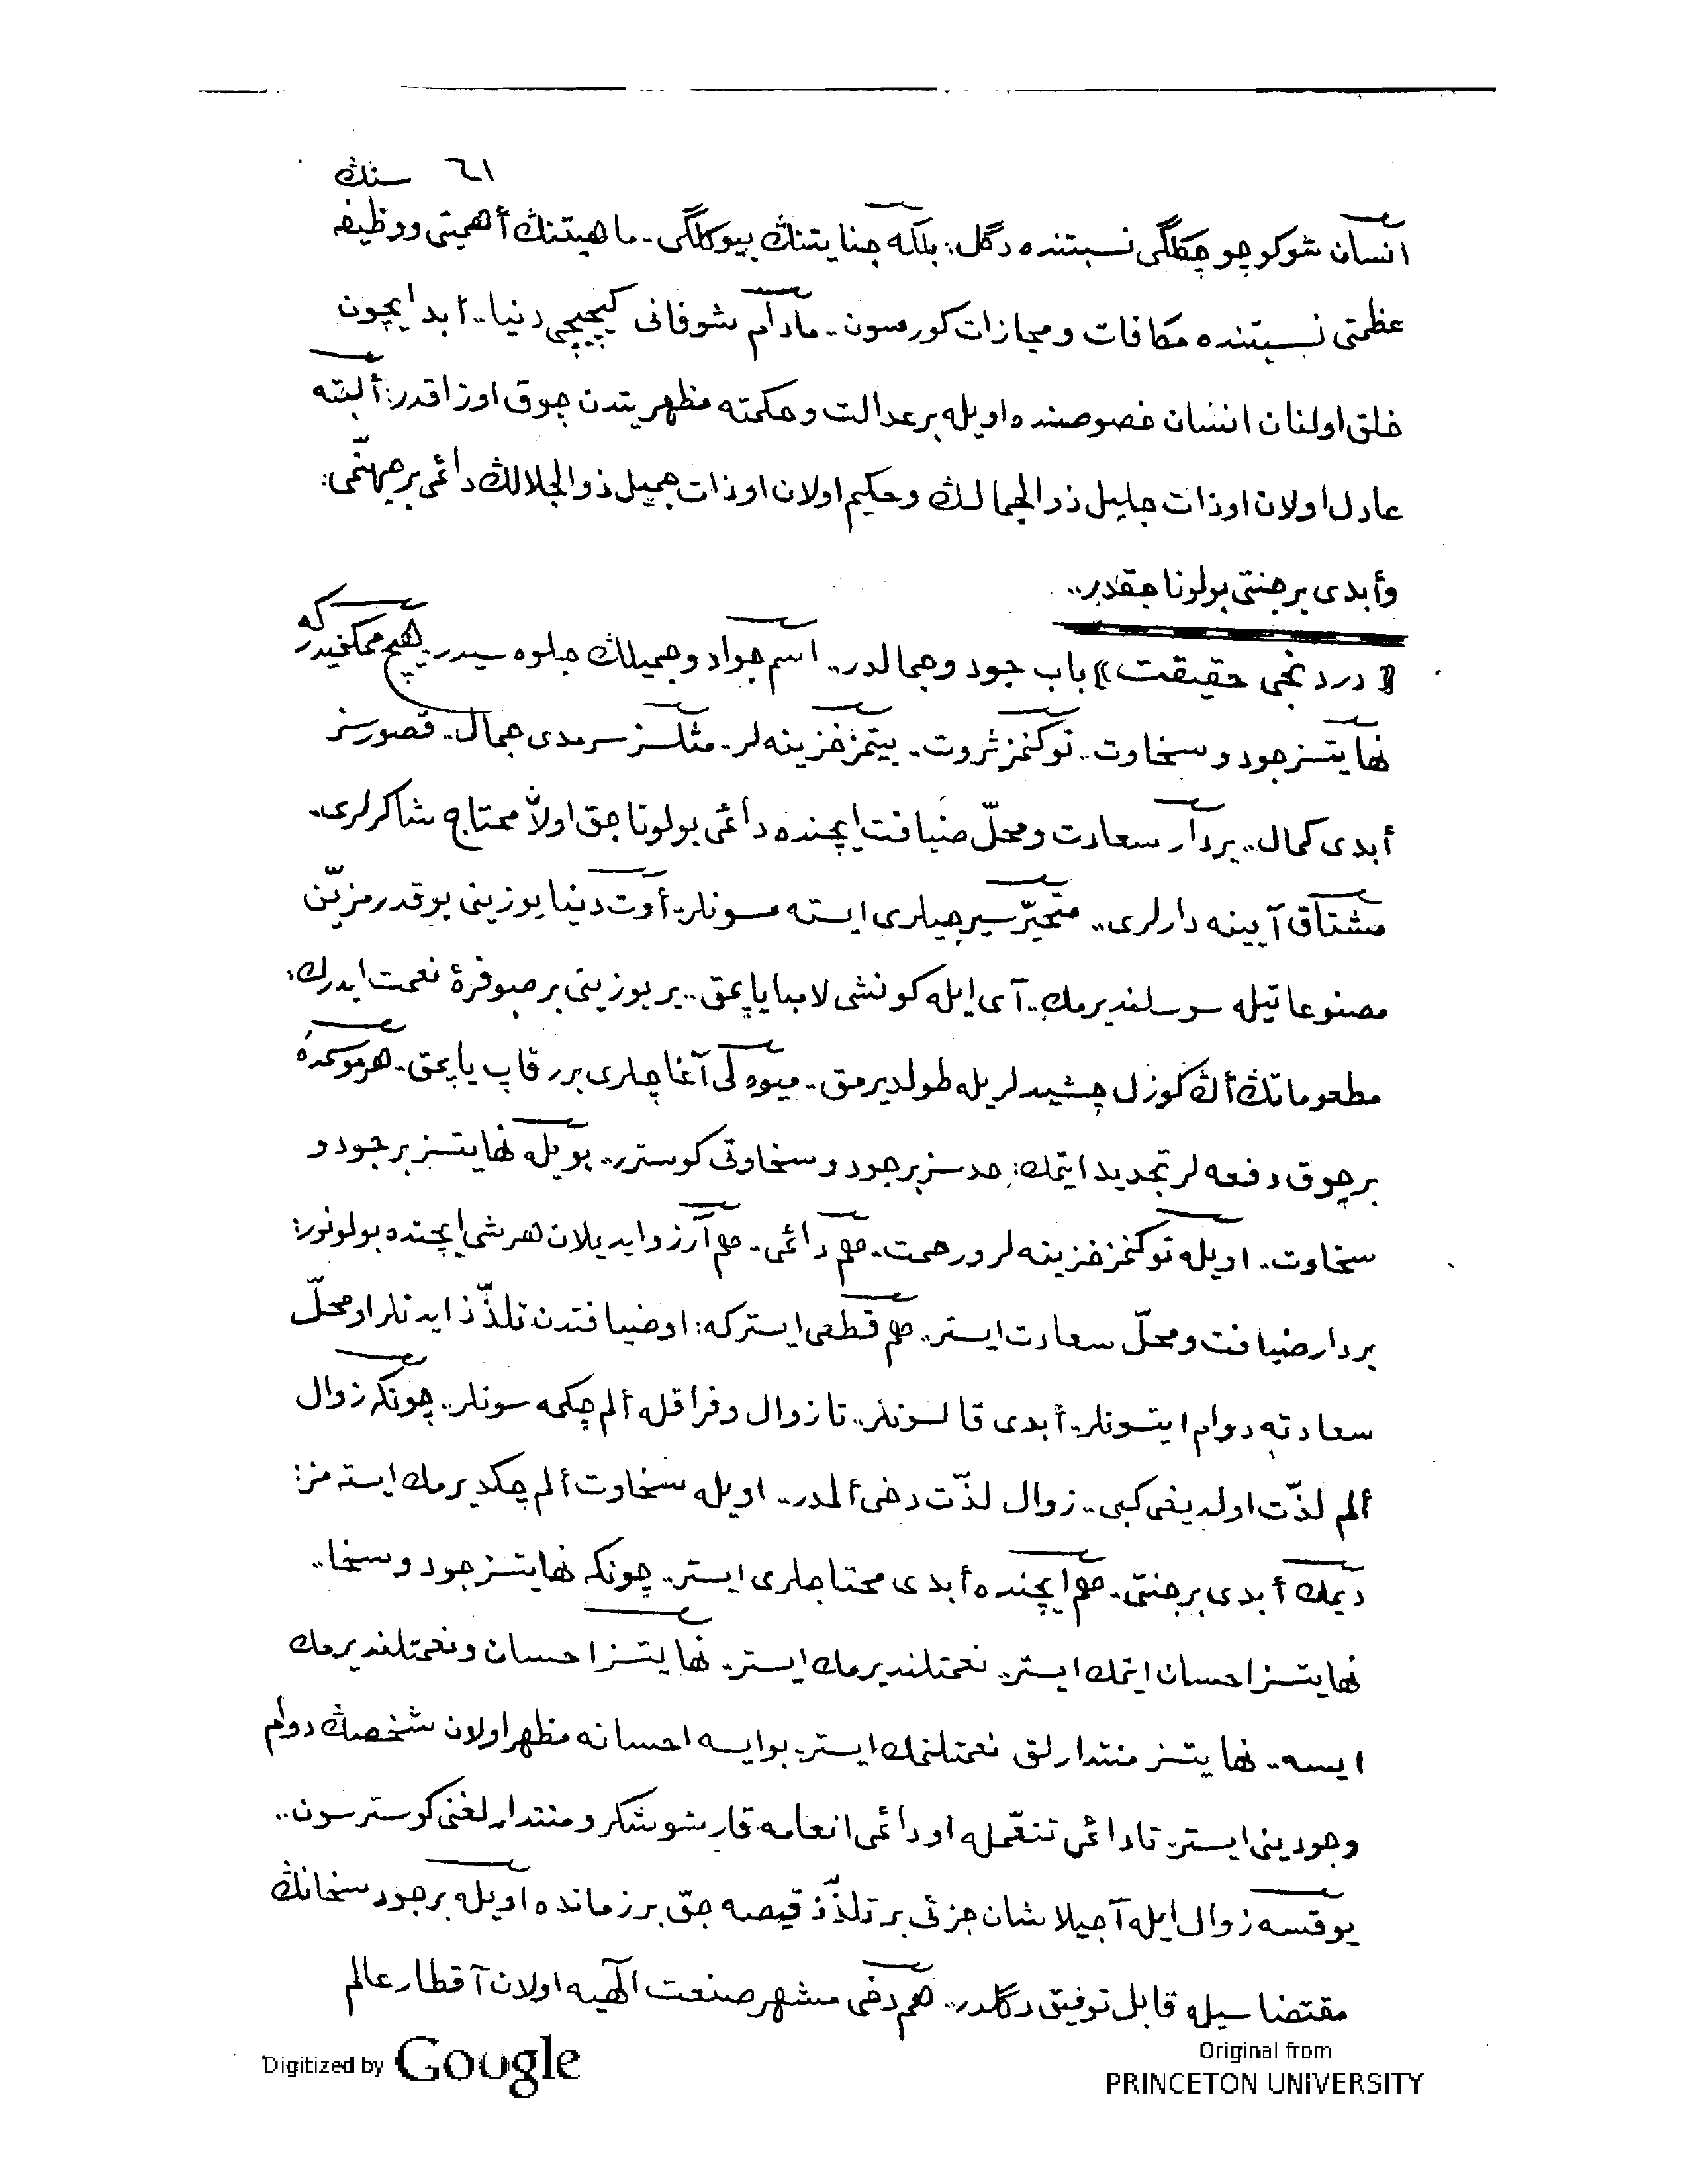 ٦١ سنك
انسان شو كوچوجكلگى نسبتنده دگل؛ بلكه جنايتنك بيوكلگى.. ماهيتنك أهميتى ووظيفه
عظمتى نسبتنده مكافات ومجازات كورسون.. مادام شوفانى كيچيجى دنيا.. أبد ايچون
خلق اولنان انسان خصوصنده اويله برعدالت وحكمته مظهريتدن چوق اوزاقدر؛ ألبته
عادل اولان اوذات جليل ذوالجمالك وحكيم اولان اوذات جميل ذوالجلالك دائمى برجهنّمى؛
وأبدى برجنتى بولوناجقدر..
﴿دردنجى حقيقت﴾ باب جود وجمالدر.. اسم جواد وجميلك جلوه سيدر. هيچ ممكنميدركه
نهايتسز جود و سخاوت.. توكنمز ثروت.. بيتمز خزينه لر.. مثلسز سرمدى جمال.. قصورسز
أبدى كمال.. بردار سعادت ومحلّ ضيافت ايچنده دائمى بولوناجق اولان محتاج شاكرلرى..
مشتاق آيينه دارلرى.. متحيّر سيرجيلرى ايسته مسونلر. أوت دنيا يوزينى بوقدر مزيّن
مصنوعاتيله سوسلنديرمك.. آى ايله كونشى لامبا ياپمق.. ير يوزينى بر صوفرۀ نعمت ايدرك؛
مطعوماتك أڭ كوزل چشيدلريله طولديرمق.. ميوه لى آغاچلرى برر قاپ ياپمق.. هرموسمده
برچوق دفعه لر تجديد ايتمك؛ حدسز برجود و سخاوتى كوسترر.. بويله نهايتسز برجود و
سخاوت.. اويله توكنمز خزينه لر ورحمت.. هم دائمى.. هم آرزوايديلان هرشى ايچنده بولونور؛
بردار ضيافت ومحلّ سعادت ايستر.. هم قطعى ايستركه: اوضيافتدن تلذّذ ايدنلر اومحلّ
سعادته دوام ايتسونلر. أبدى قالسونلر.. تا زوال وفراقله ألم چكمه سونلر.. چونكه زوال
ألم لذّت اولديغى كبى.. زوال لذّت دخى ألمدر.. اويله سخاوت ألم چكديرمك ايسته مز؛
ديمك أبدى برجنتى.. هم ايچنده أبدى محتاجلرى ايستر.. چونكه نهايتسز جود و سخا..
نهايتسز احسان ايتمك ايستر. نعمتلنديرمك ايستر. نهايتسز احسان ونعمتلنديرمك
ايسه.. نهايتسز منتدارلق نعمتلنمك ايستر. بوايسه احسانه مظهر اولان شخصك دوام
وجودينى ايستر. تا دائمى تنعّمله اودائمى انعامه قارشو شكر و منتدارلغنى كوسترسون..
يوقسه زوال ايله آجيلاشان جزئى بر تلذّذ قيصه جق بر زمانده اويله برجود سخانك
مقتضاسيله قابل توفيق دگلدر.. هم دخى مشهر صنعت الٓهيه اولان آقطار عالم
Digitized by Google
Original from
PRINCETON UNIVERSITY